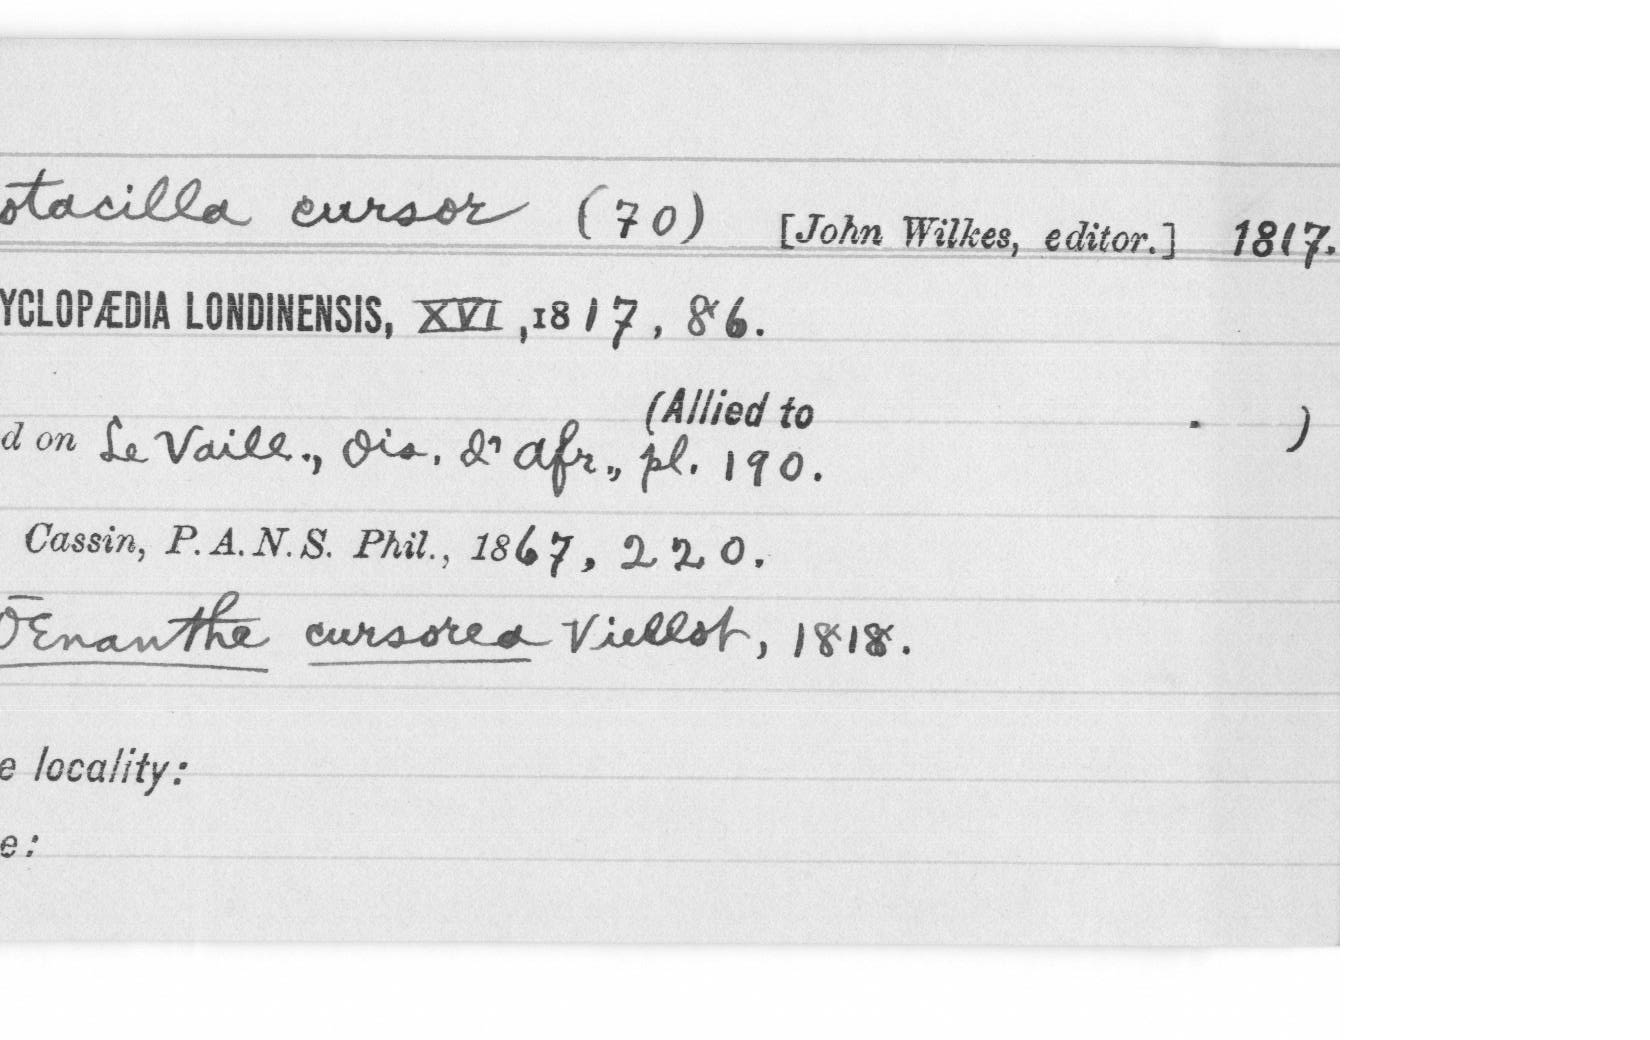 otacilla cursor (70) [John Wilkes, editor.] 1817.
YCLOPÆDIA LONDINENSIS, XVI, 1817, 86.
(Allied to . )
d on Le Vaill., Ois. d'Afr., pl. 190.
Cassin, P. A. N. S. Phil., 1867, 220.
OEnanthe cursorea Viellot, 1818.
e locality:
e: